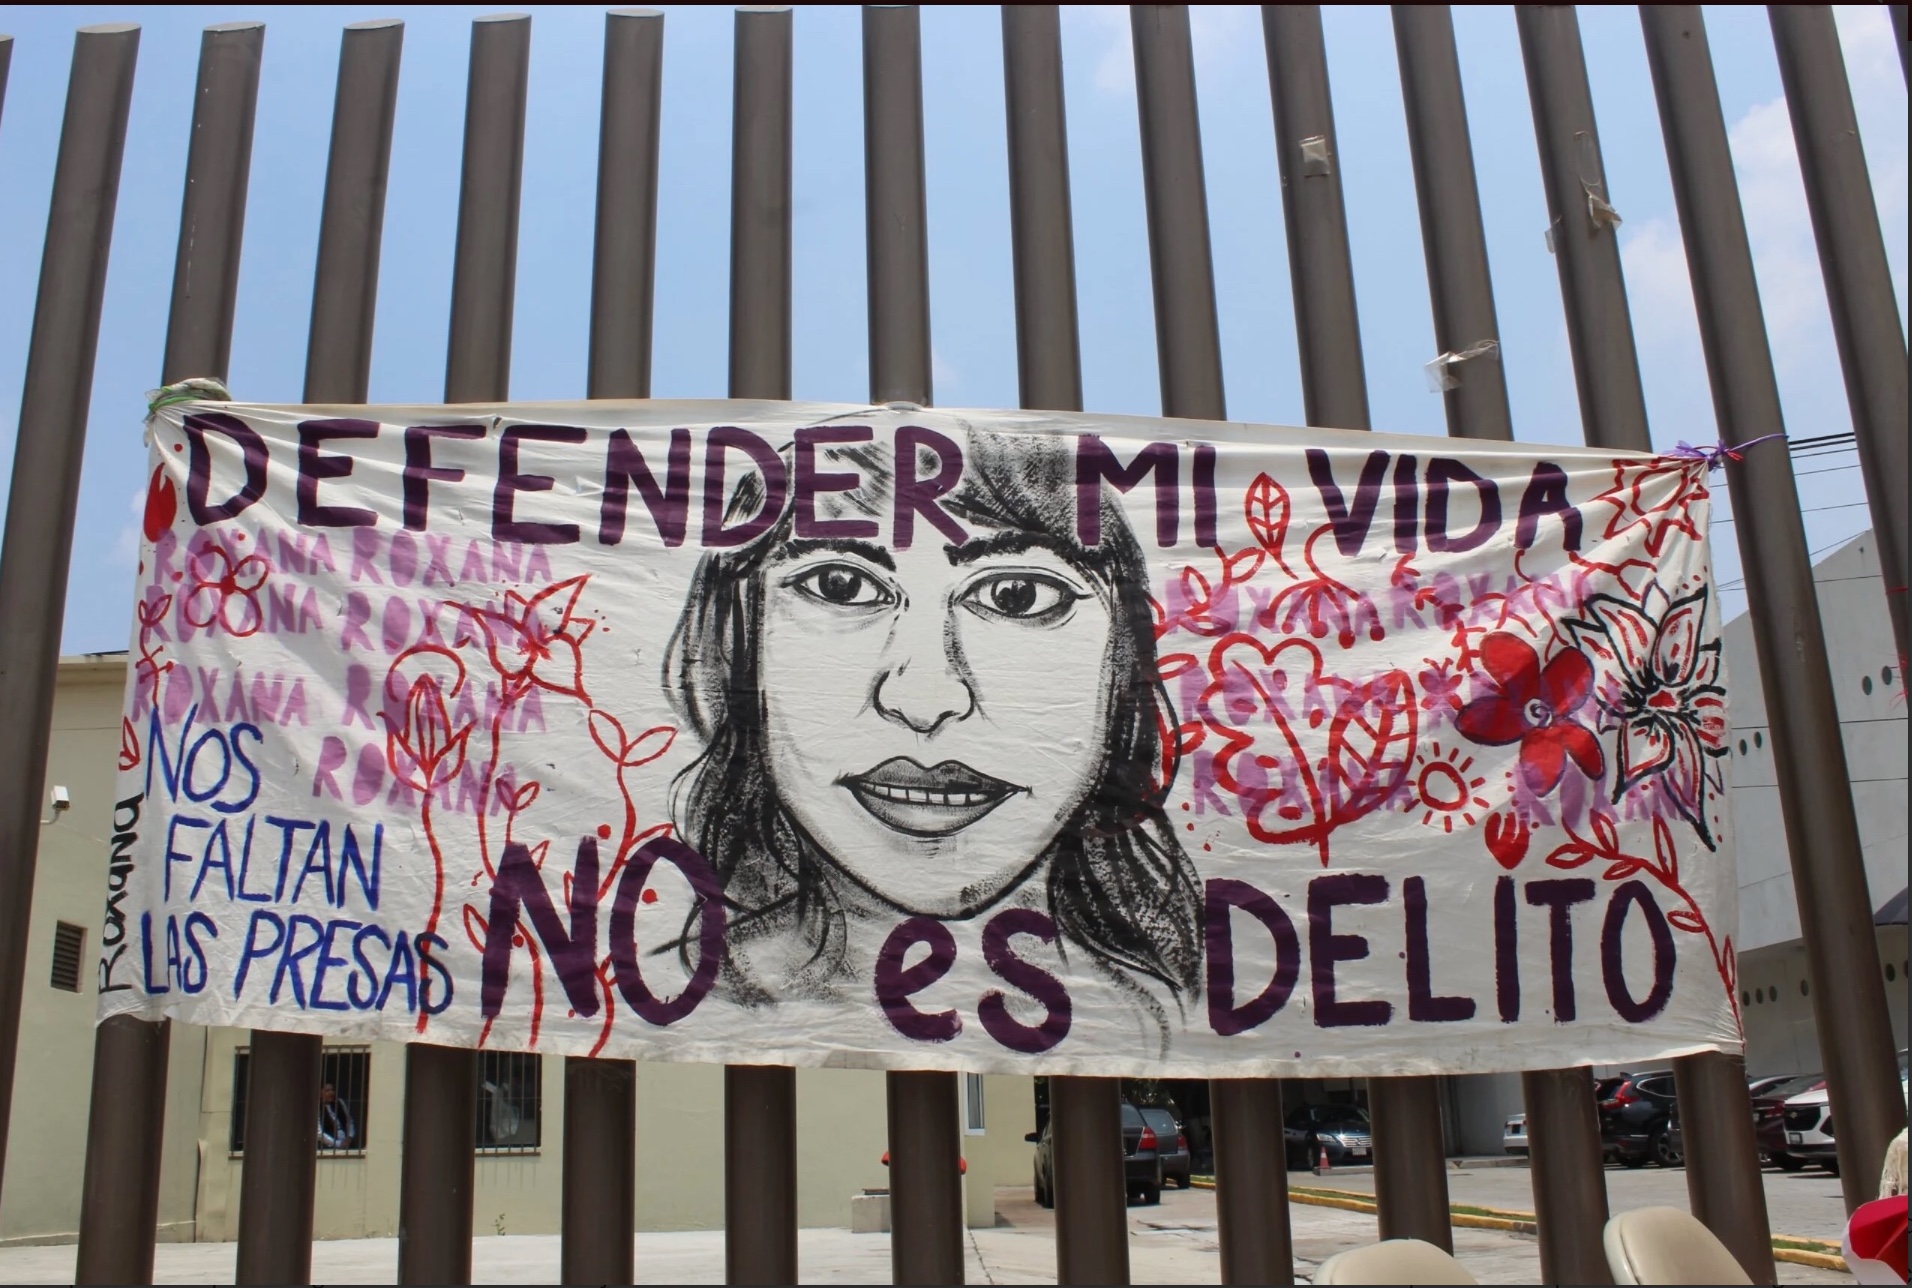 DEFENDER MI VIDA
ROXANA ROXANA
ROXANA ROXANA
ROXANA ROXANA
ROXANA
ROXANA ROXANA
ROXANA
ROXANA ROXAN
NOS
FALTAN
LAS PRESAS
Roxana
NO es DELITO